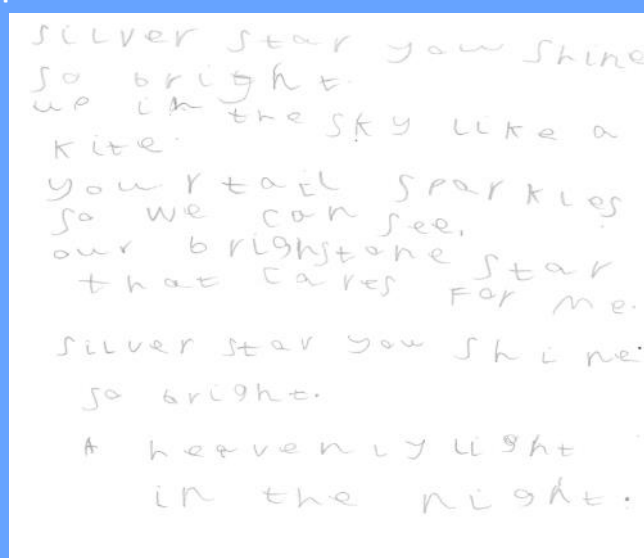 Silver Star you Shine
So bright.
up in the sky like a
kite.
your tail sparkles
so we can see,
our brighstone star
that cares For me.
silver star you shine
so bright.
A heavenly light
in the night.